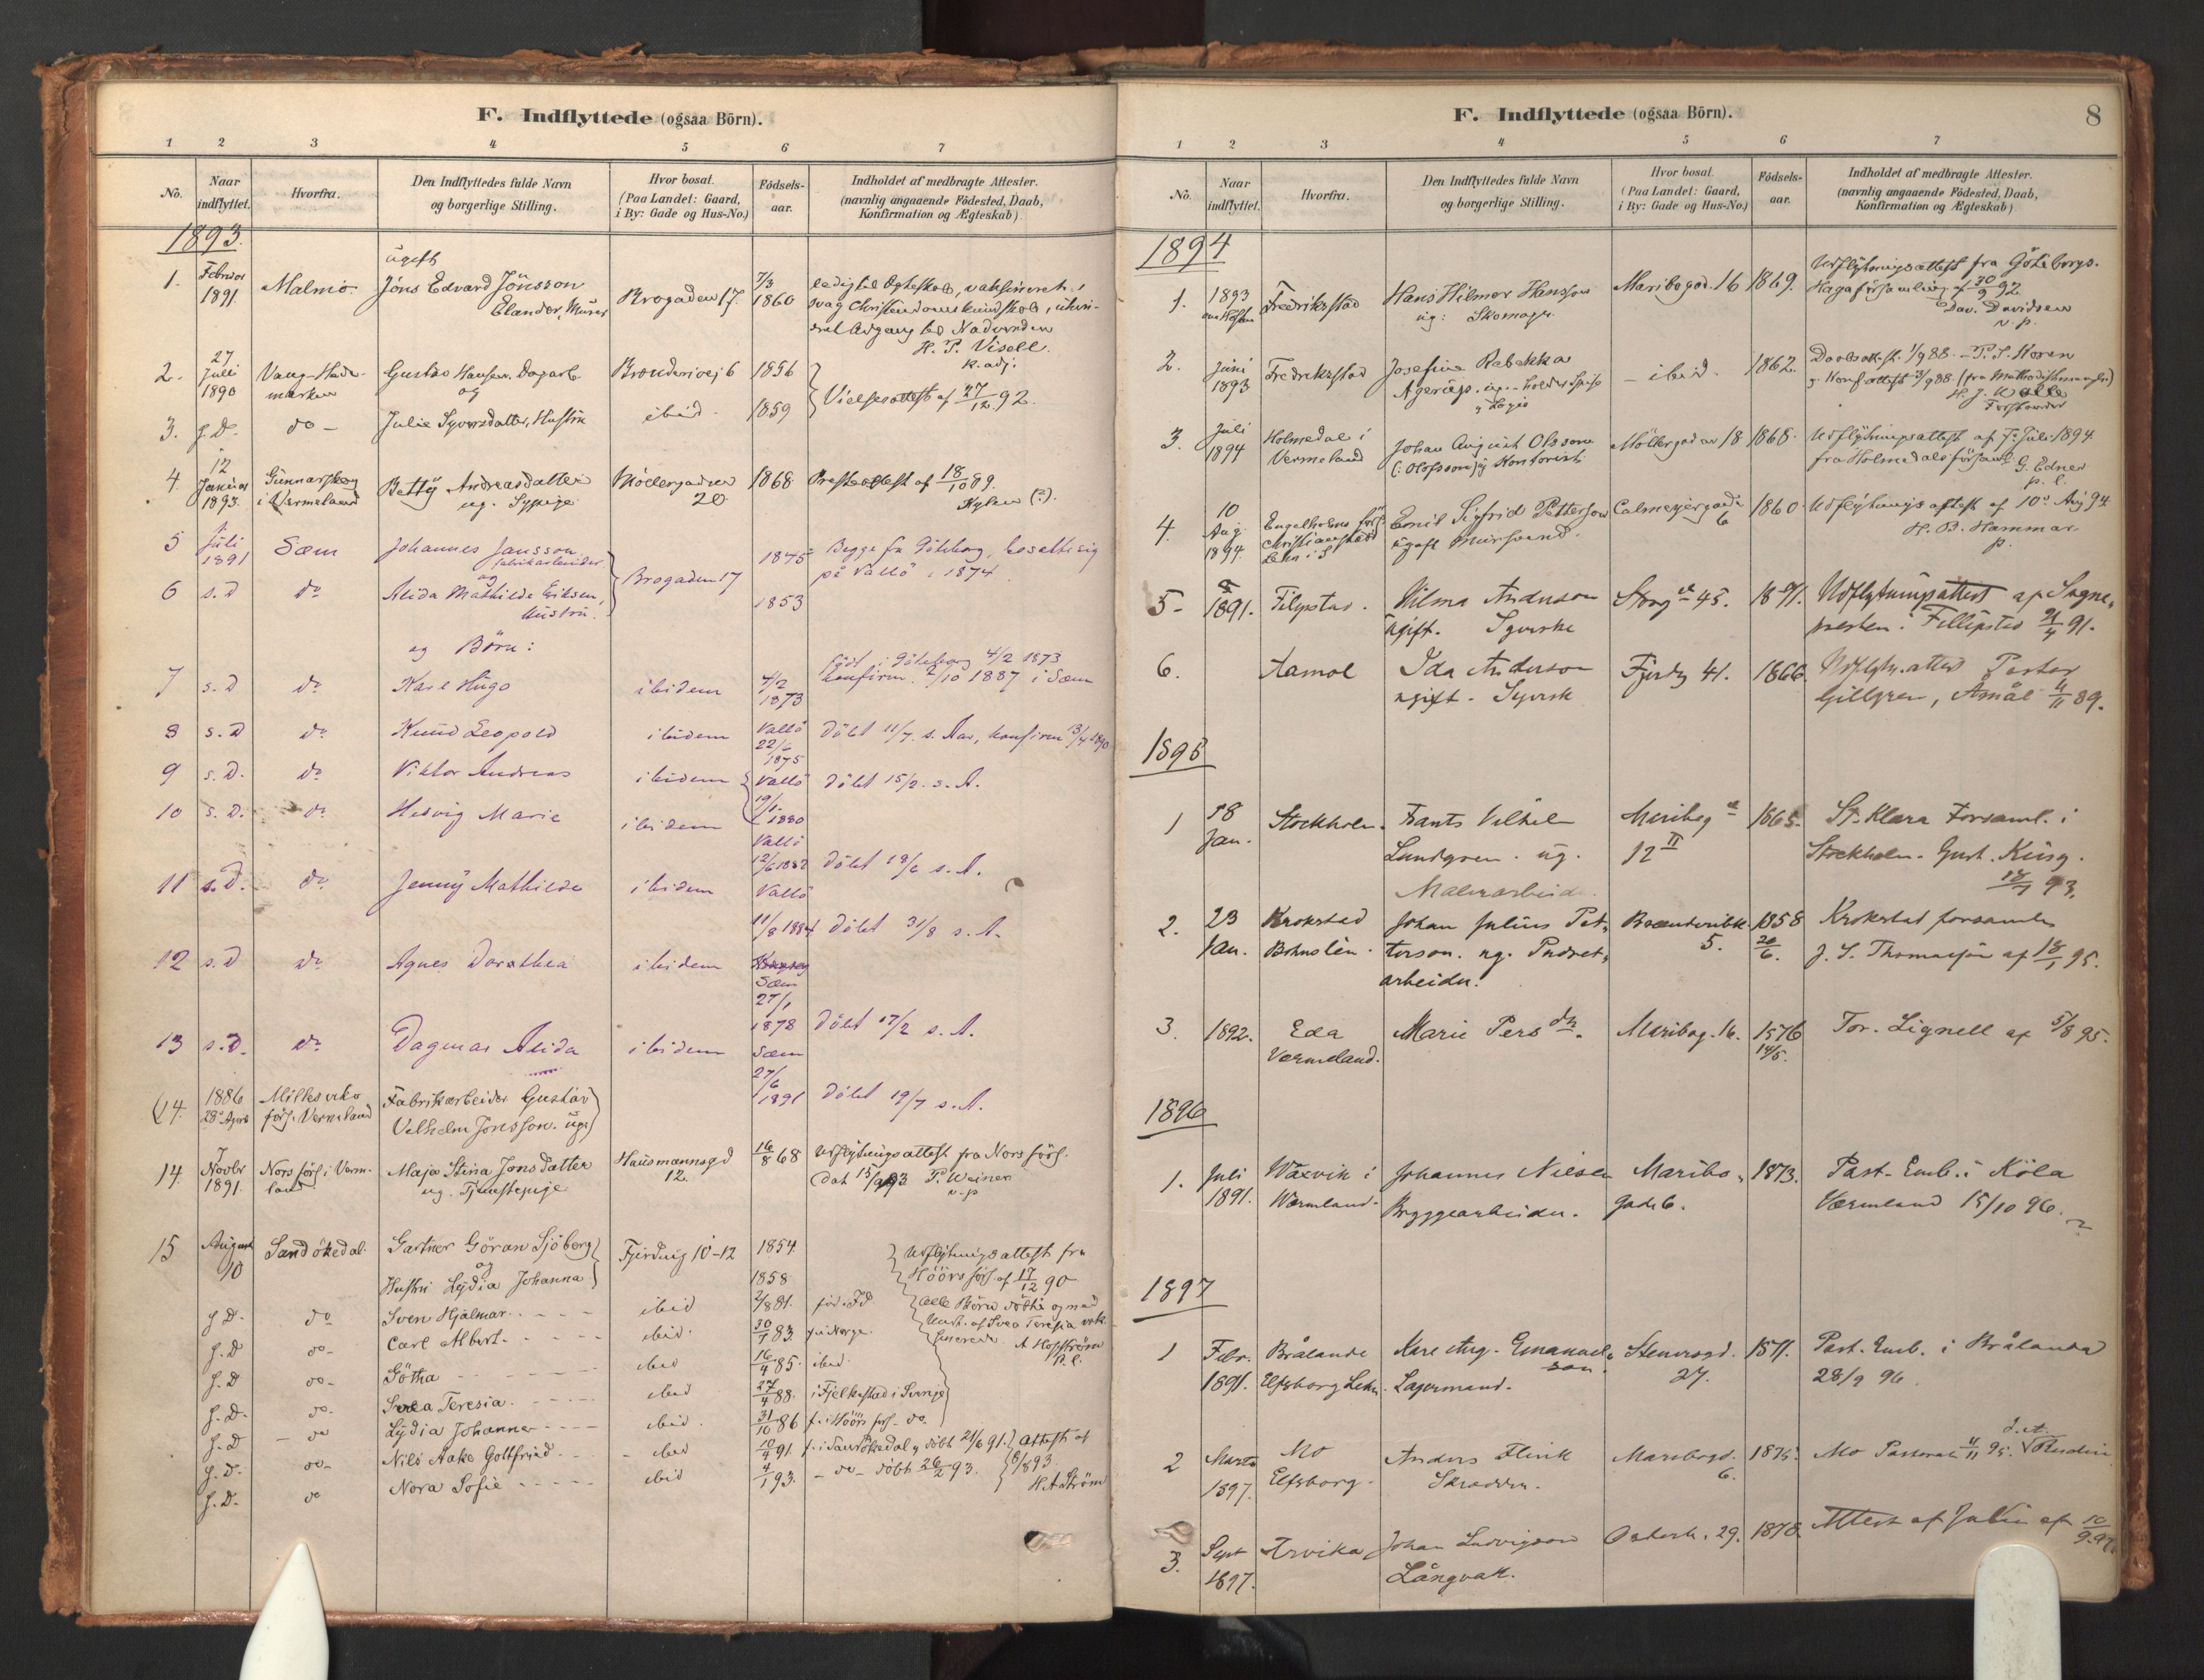 F. Indflyttede (ogsaa Börn).
1 2 3 4 5 6 7
No. Naar indflyttet. Hvorfra. Den Indflyttedes fulde Navn og borgerlige Stilling. Hvor bosat. (Paa Landet: Gaard, i By: Gade og Hus-No.) Födsels-aar. Indholdet af medbragte Attester. (navnlig angaaende Födested, Daab, Konfirmation og Ægteskab)
1893.
ugift
1. Februar 1891. Malmö. Jöns Edvard Jönsson Elander, Murer Brogaden 17. 7/3 1860 ledig til Egteskab, vaksineret,
svag Christendomskundskab,
Adgang til Nadverden
H. P. Visell.
k. adj.
2. 27 Juli 1890 Vang Hedemarken Gustav Hansen. Dagarb. og Brenderivej 6 1856
3. s. D. do - Julie Syversdatter, Hustru ibid. 1859 Vielsesattest af 27/12 92.
4. 12 Januar 1893. Gunnarsskog i Vermeland Betty Andreasdatter ug. Sypige Möllergaden 20. 1868 Presteattest af 18/10 89.
Kylen (?).
5 Juli 1891 Sæm Johannes Jansson fabrikarbeider og Brogaden 17 1845 Begge fra Göteborg, bosatte sig
på Vallö i 1874
6 s. D do Alida Mathilde Eriksen, Hustru. 1853
og Börn:
7 s. D do Karl Hugo ibidem 4/2 1873 födt i Göteborg 4/2 1873
konfirm. 2/10 1887 i Sæm
8 s. D do Knud Leopold ibidem Vallö 22/6 1875 döbt 11/7. s. Aar, konfirm 13/4 1890
9 s. D. do Viktor Andreas ibidem Vallö 19/1 1880 döbt 15/2. s. A.
10 s. D. do Hedvig Marie ibidem Vallö 12/6 1882 döbt 18/6 s. A.
11 s. D. do Jenny Mathilde ibidem Vallö 11/8 1884 döbt 31/8 s. A.
12 s. D do Agnes Dorothea ibidem Sæm 27/1 1878 döbt 17/2 s. A.
13 s. D. do Dagmar Alida ibidem Sæm 27/6 1891 döbt 19/7 s. A.
(14. 1886 28de April Millesviks förs. Vermeland Fabrikarbeider Gustav Velhelm Jonsson. ug.)
14. 7 Novbr 1891. Nors förs i Vermland Maja Stina Jons Datter ug. Tjenstepige Hausmannsgd 12. 16/8 68 Udflytningsattest fra Nors förs.
Dat 15/9 93 P. Weiner
v. p
15 August 10 Sandökedal. Gartner Göran Sjöberg og Fjerding 10-12 1854. Udflytningsattest fra
Höörs förs. af 17/12 90
Hustru Lydia Johanna 1858
s D. do Sven Hjalmar ibid 2/8 81. föd i Id alle Börn döbte og med
s. D do- Carl Albert ibid. 30/1 83. f. i Norge. Undt. af Svea Teresia vak
s. D do- Götha ibid 16/4 85. ibid. A Hoffström
p. l.
s. D. do- Svea Teresia ibid 27/4 88. i Fjelkestad i Sverige
s. D - do Lydia Johanna ibid. 31/10 86 f. i Höörs förs - do.
s. D. do- Nils Aake Gottfried ibid 10/9 91. f. i Sandökedal, döbt 21/6 91. Attest af
s. D. do Nora Sofie ibid 4/1 93. - do - döbt 26/2 93. 8/ 1893.
H. A Ström
F. Indflyttede (ogsaa Börn). 8
1 2 3 4 5 6 7
No. Naar indflyttet. Hvorfra. Den Indflyttedes fulde Navn og borgerlige Stilling. Hvor bosat. (Paa Landet: Gaard, i By: Gade og Hus-No.) Födsels-aar. Indholdet af medbragte Attester. (navnlig angaaende Födested, Daab, Konfirmation og Ægteskab)
1894
1. 1893 om Hösten Fredrikstad Hans Hilmer Hansson ug: Skomager Maribogad. 16 1869. Udflytningsattest fra Göteborgs
Haga församling af 30/9 92.
Dav. Davidsson
v. p.
2. Juni 1893 Fredrikstad Josefine Rebekka Agerup. ug. holder Spise & Logis - ibid. 1862. Daabsattest 1/9 88 - P. S. Koren
g. Konf attest 3/9 88 (fra Methodistmenigh.)
H. J. Wolle
Forstander
3. Juli 1894 Holmedal i Vermeland Johan August Olsson (: Olofsson) ug Kontorist Möllergaden 18 1868. Udflytningsattest af 7. Juli 1894
fra Holmedals församl G. Edner
p. l.
4. 10 Aug 1894. Engelholms förs Christianstad Len i S Emil Sigfrid Petterson ugift Mursvend. Calmeyergade 6 1860. Udflytningsattest af 10de Aug 94
H. B. Hammar.
p.
5. 1891. Filipstad. Vilma Anderson ugift. Syerske Storgd 45. 1871. Udflytningsattest af Sogne-
presten i Fillipstad 21/4 91.
6. Aamol Ida Anderson ugift. Syersk Fjerdg 41. 1866. Udflytn. attest Pastor
Gillgren, Åmål 4/11 89.
1895
1 18 Jan. Stockholm. Frants Vilhelm Lundgren. ug. Malerarbeid. Maribog 12 II 1865. St. Klara Forsaml. i
Stockholm. Gust. King.
18/1 93.
2. 23 Jan. Krokstad Bohuslén. Johan Julius Petterson. ug. Pudretarbeider. Brenderibk. 5. 1858 20/6. Krokstad forsaml
J. S. Thomasson af 18/1 95.
3. 1892. Eda Vermeland. Marie Persdtr. Maribog. 16. 1876 14/5. Tor. Lignell af 5/8 95.
1896
1. Juli 1891. Waxvik i Wermland. Johannes Nielsen Bryggearbeider. Maribogade 6. 1873. Past. Emb. i Köla
Værmland 15/10 96.
1897
1 Febr. 1891. Brålanda Elfsborg Lehn. Karl Aug. Emanuelson Lagermand. Stenersgd. 27. 1871. Past. Emb. i Brålanda
28/9 96.
2 Marts 1897. Mo Elfsborg. Anders Flink Skredder. Maribogd. 6. 1875. Mo Pastorat 11/11 95.
3. Sept 1897. Arvika Johan Ludvigson Långvak. Osterh. 29. 1878. Attest af af 10/9 97